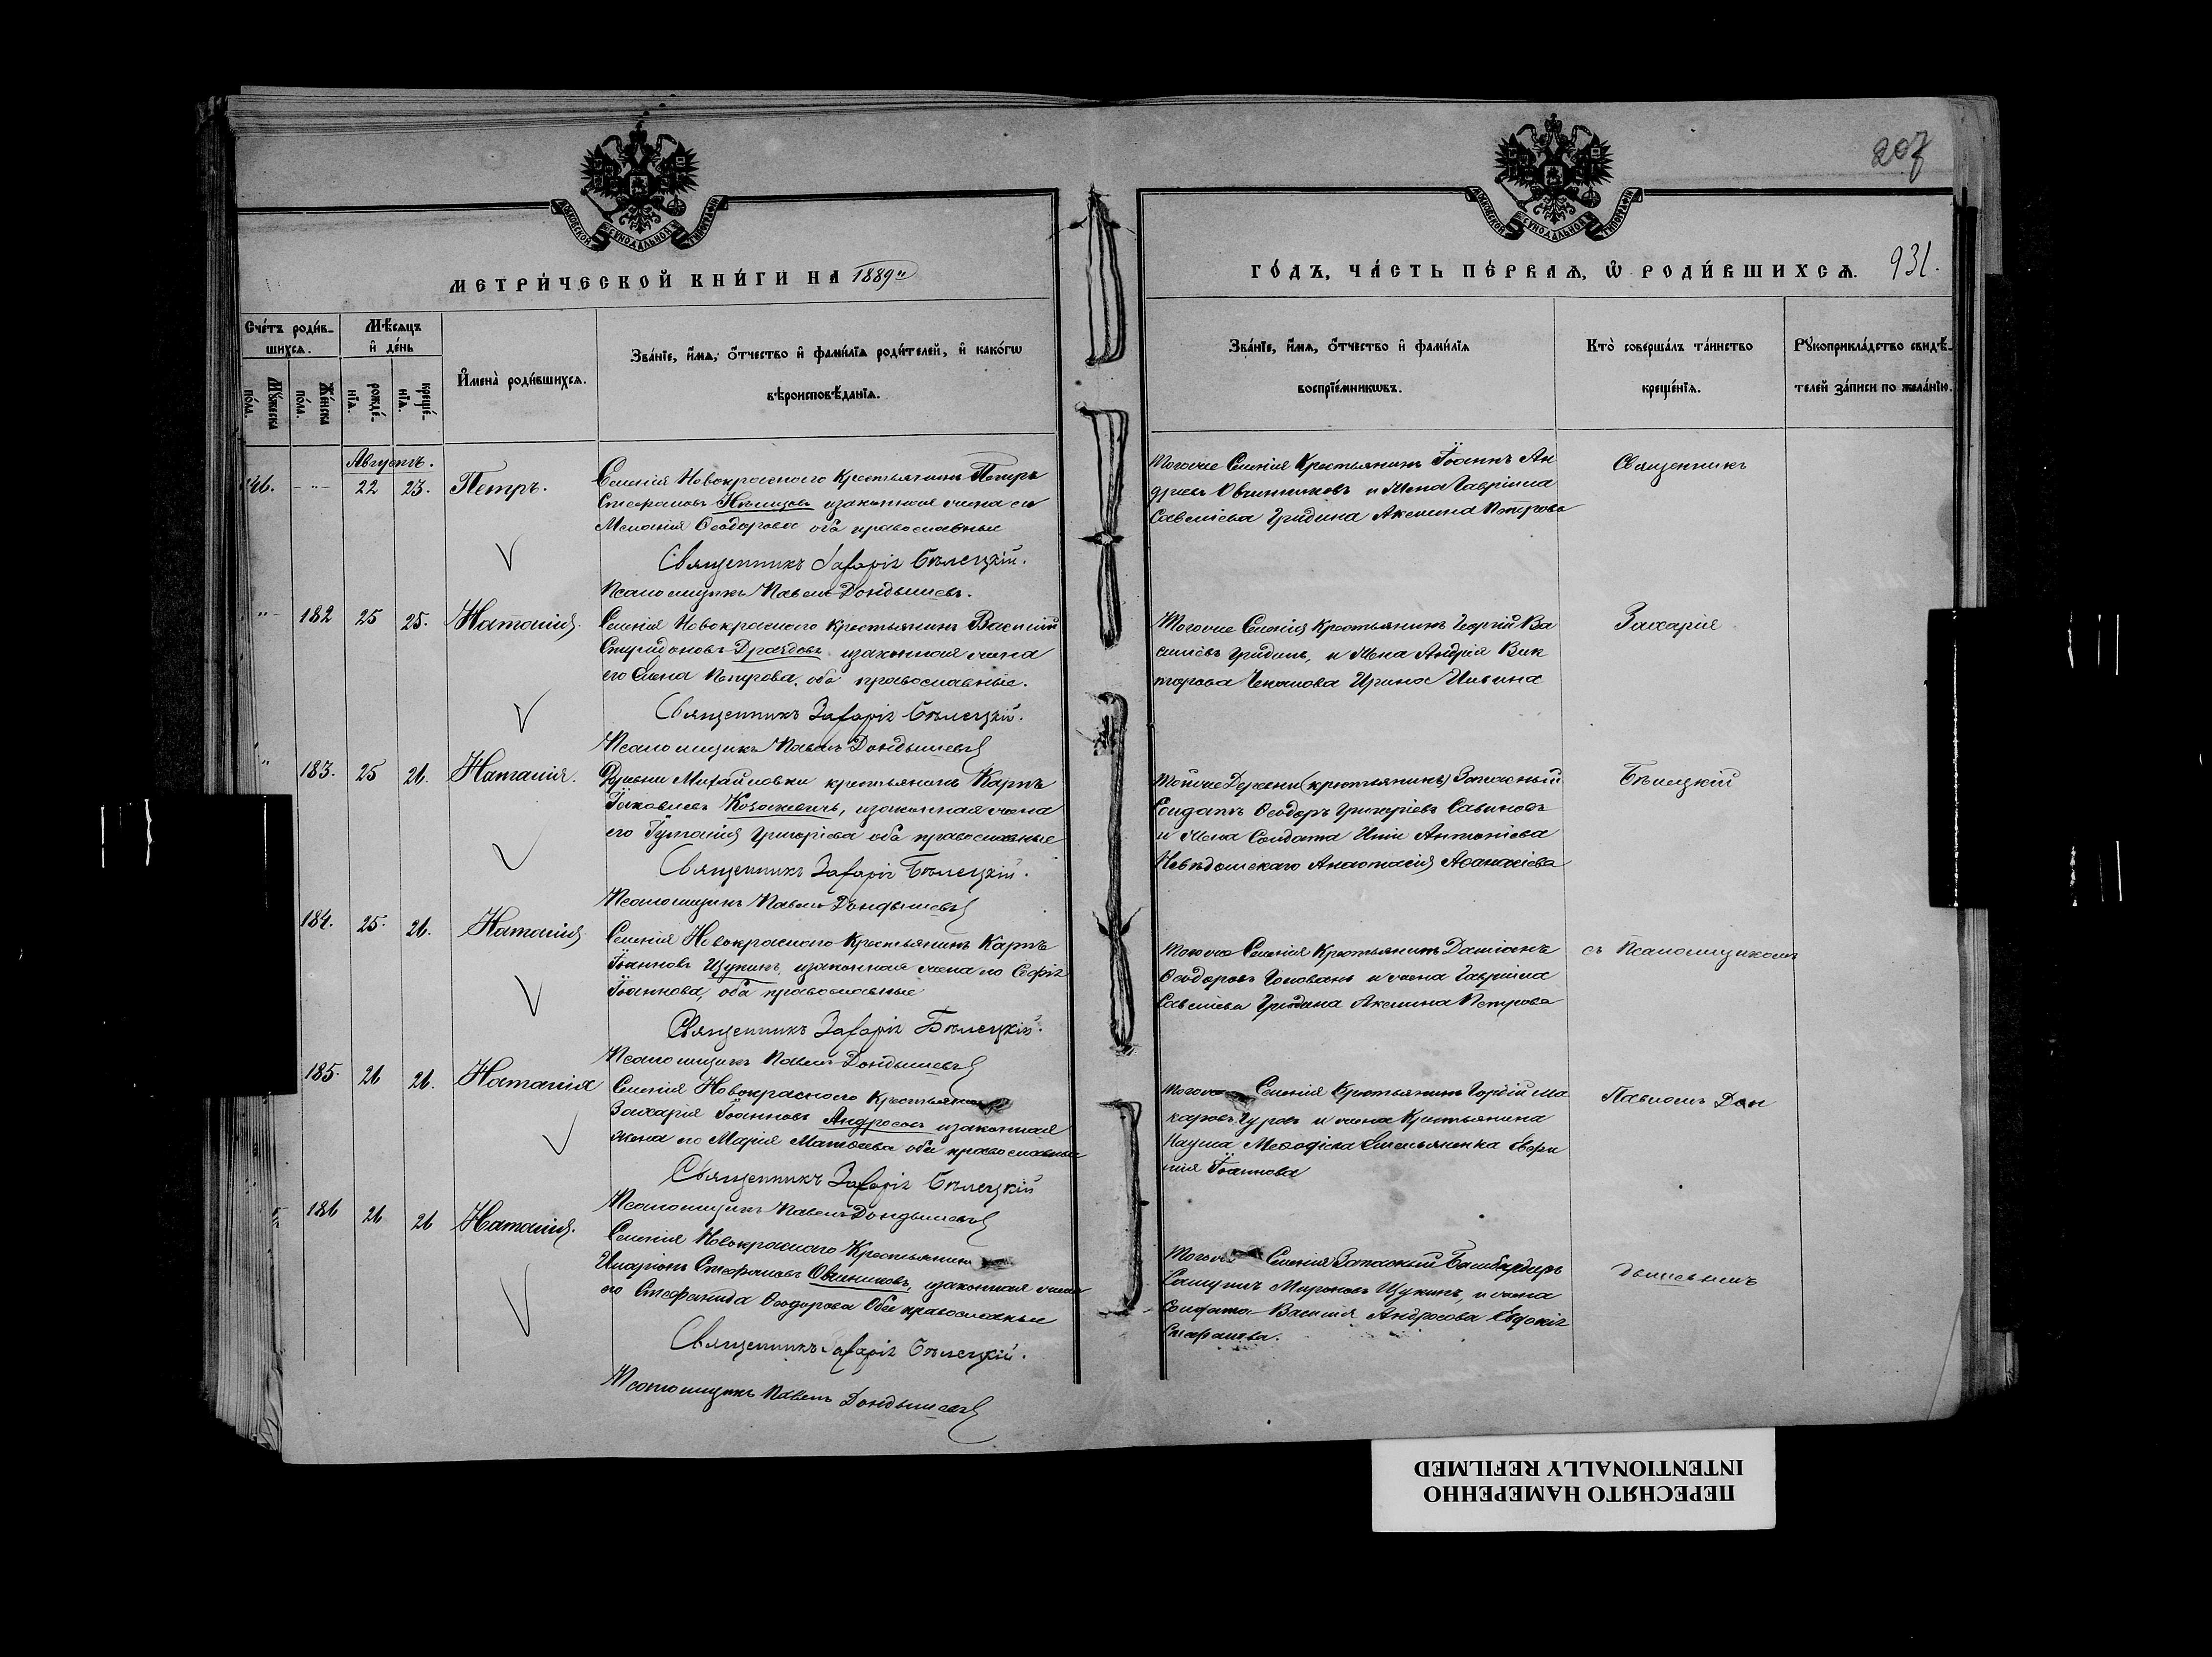 207
МЕТРИ́ЧЕСКОЙ КНИ́ГИ НА 1889й
ГО́ДЪ, ЧА́СТЬ ПЕ́РВАЯ, Ѡ РОДИ́ВШИХСЯ. 931.
Сче́тъ роди́в-
шихся.
Мѹ́жеска
по́ла.
Же́нска
по́ла.
Мѣ́сяцъ
и де́нь
рожде́-
нїя.
креще́-
нїя.
И҆мена̀ роди́вшихся.
Зва́нїе, и҆́мя, ѻ҆́тчество и҆ фами́лїя роди́телей, и҆ како́гѡ
вѣроисповѣ́данїя.
Зва́нїе, и҆́мя, ѻ҆́тчество и҆ фами́лїя
воспрїе́мникѡвъ.
Кто̀ соверша́лъ та́инство
креще́нїя.
Рꙋкоприкла́дство свидѣ́-
телей за́писи по жела́нїю.
Августъ.
146. - " - 22 23. Петръ.
Селенія Новокраснаго Крестьянинъ Петръ
Стефановъ Нѣмцовъ изаконная жена его
Меланія Ѳеодорова оба православные
Священникъ Захарія Бѣлецкій.
Псаломщикъ Павелъ Дондышевъ.
Тогоже Селенія Крестьянинъ Іоаннъ Ан
дреевъ Овчинниковъ и Жена Гавріила
Савеліева Гридина Акилина Петрова
Священникъ
" 182 25 25. Наталія.
Селенія Новокраснаго Крестьянинъ Василій
Спиридоновъ Драздовъ изаконная жена
его Елена Петрова, оба православные.
Священникъ Захарія Бѣлецкій.
Псаломщикъ Павелъ Дондышевъ
Тогоже Селенія Крестьянинъ Георгій Ва
силіевъ Гридинъ, и Жена Андрея Вик
торова Чекалова Ирина Ильина
Захарія
" 183. 25 26. Наталія.
Деревни Михайловки крестьянинъ Карпъ
Іаковлевъ Козакевичъ, изаконная жена
его Іуліанія Григоріева оба православные
Священникъ Захарія Бѣлецкій.
Псаломщикъ Павелъ Дондышевъ
Тойже Деревни (крестьянинъ) Запасный
Солдатъ Ѳеодоръ Григоріевъ Савиновъ
и Жена Солдата Иліи Антоніева
Невѣдомскаго Анастасія Аѳанасіева
Бѣлецкій
184. 25. 26. Наталія
Селенія Новокраснаго Крестьянинъ Карпъ
Іоанновъ Щукинъ, изаконная жена его Софія
Іоаннова, оба православные
Священникъ Захарія Бѣлецкій.
Псаломщикъ Павелъ Дондышевъ
Тогоже Селенія Крестьянинъ Даміанъ
Ѳеодоровъ Головань и жена Гавріила
Савеліева Гридина Акилина Петрова
съ Псаломщикомъ
185. 26 26. Наталія
Селенія Новокраснаго Крестьянинъ
Захарія Іоанновъ Андросовъ изаконная
жена его Марія Матѳеева оба православные
Священникъ Захарія Бѣлецкій
Псаломщикъ Павелъ Дондышевъ
Тогоже Селенія Крестьянинъ Гордій Ма
каровъ Гуровъ и жена Крестьянина
Наума Меѳодіева Емельяненка Евфи
мія Іоаннова
Павломъ Дон
186 26 26 Наталія.
Селенія Новокраснаго Крестьянинъ
Иларіонъ Стефановъ Овчинниковъ, изаконная жена
его Стефанида Ѳеодорова Оба православные
Священникъ Захарія Бѣлецкій.
Псаломщикъ Павелъ Дондышевъ
Тогоже Селенія Запасный Бамбардиръ
Самуилъ Мироновъ Щукинъ, и жена
Солдата Василія Андросова Евдокія
Стефанова.
дышевымъ
ПЕРЕСНЯТО НАМЕРЕННО
INTENTIONALLY REFILMED